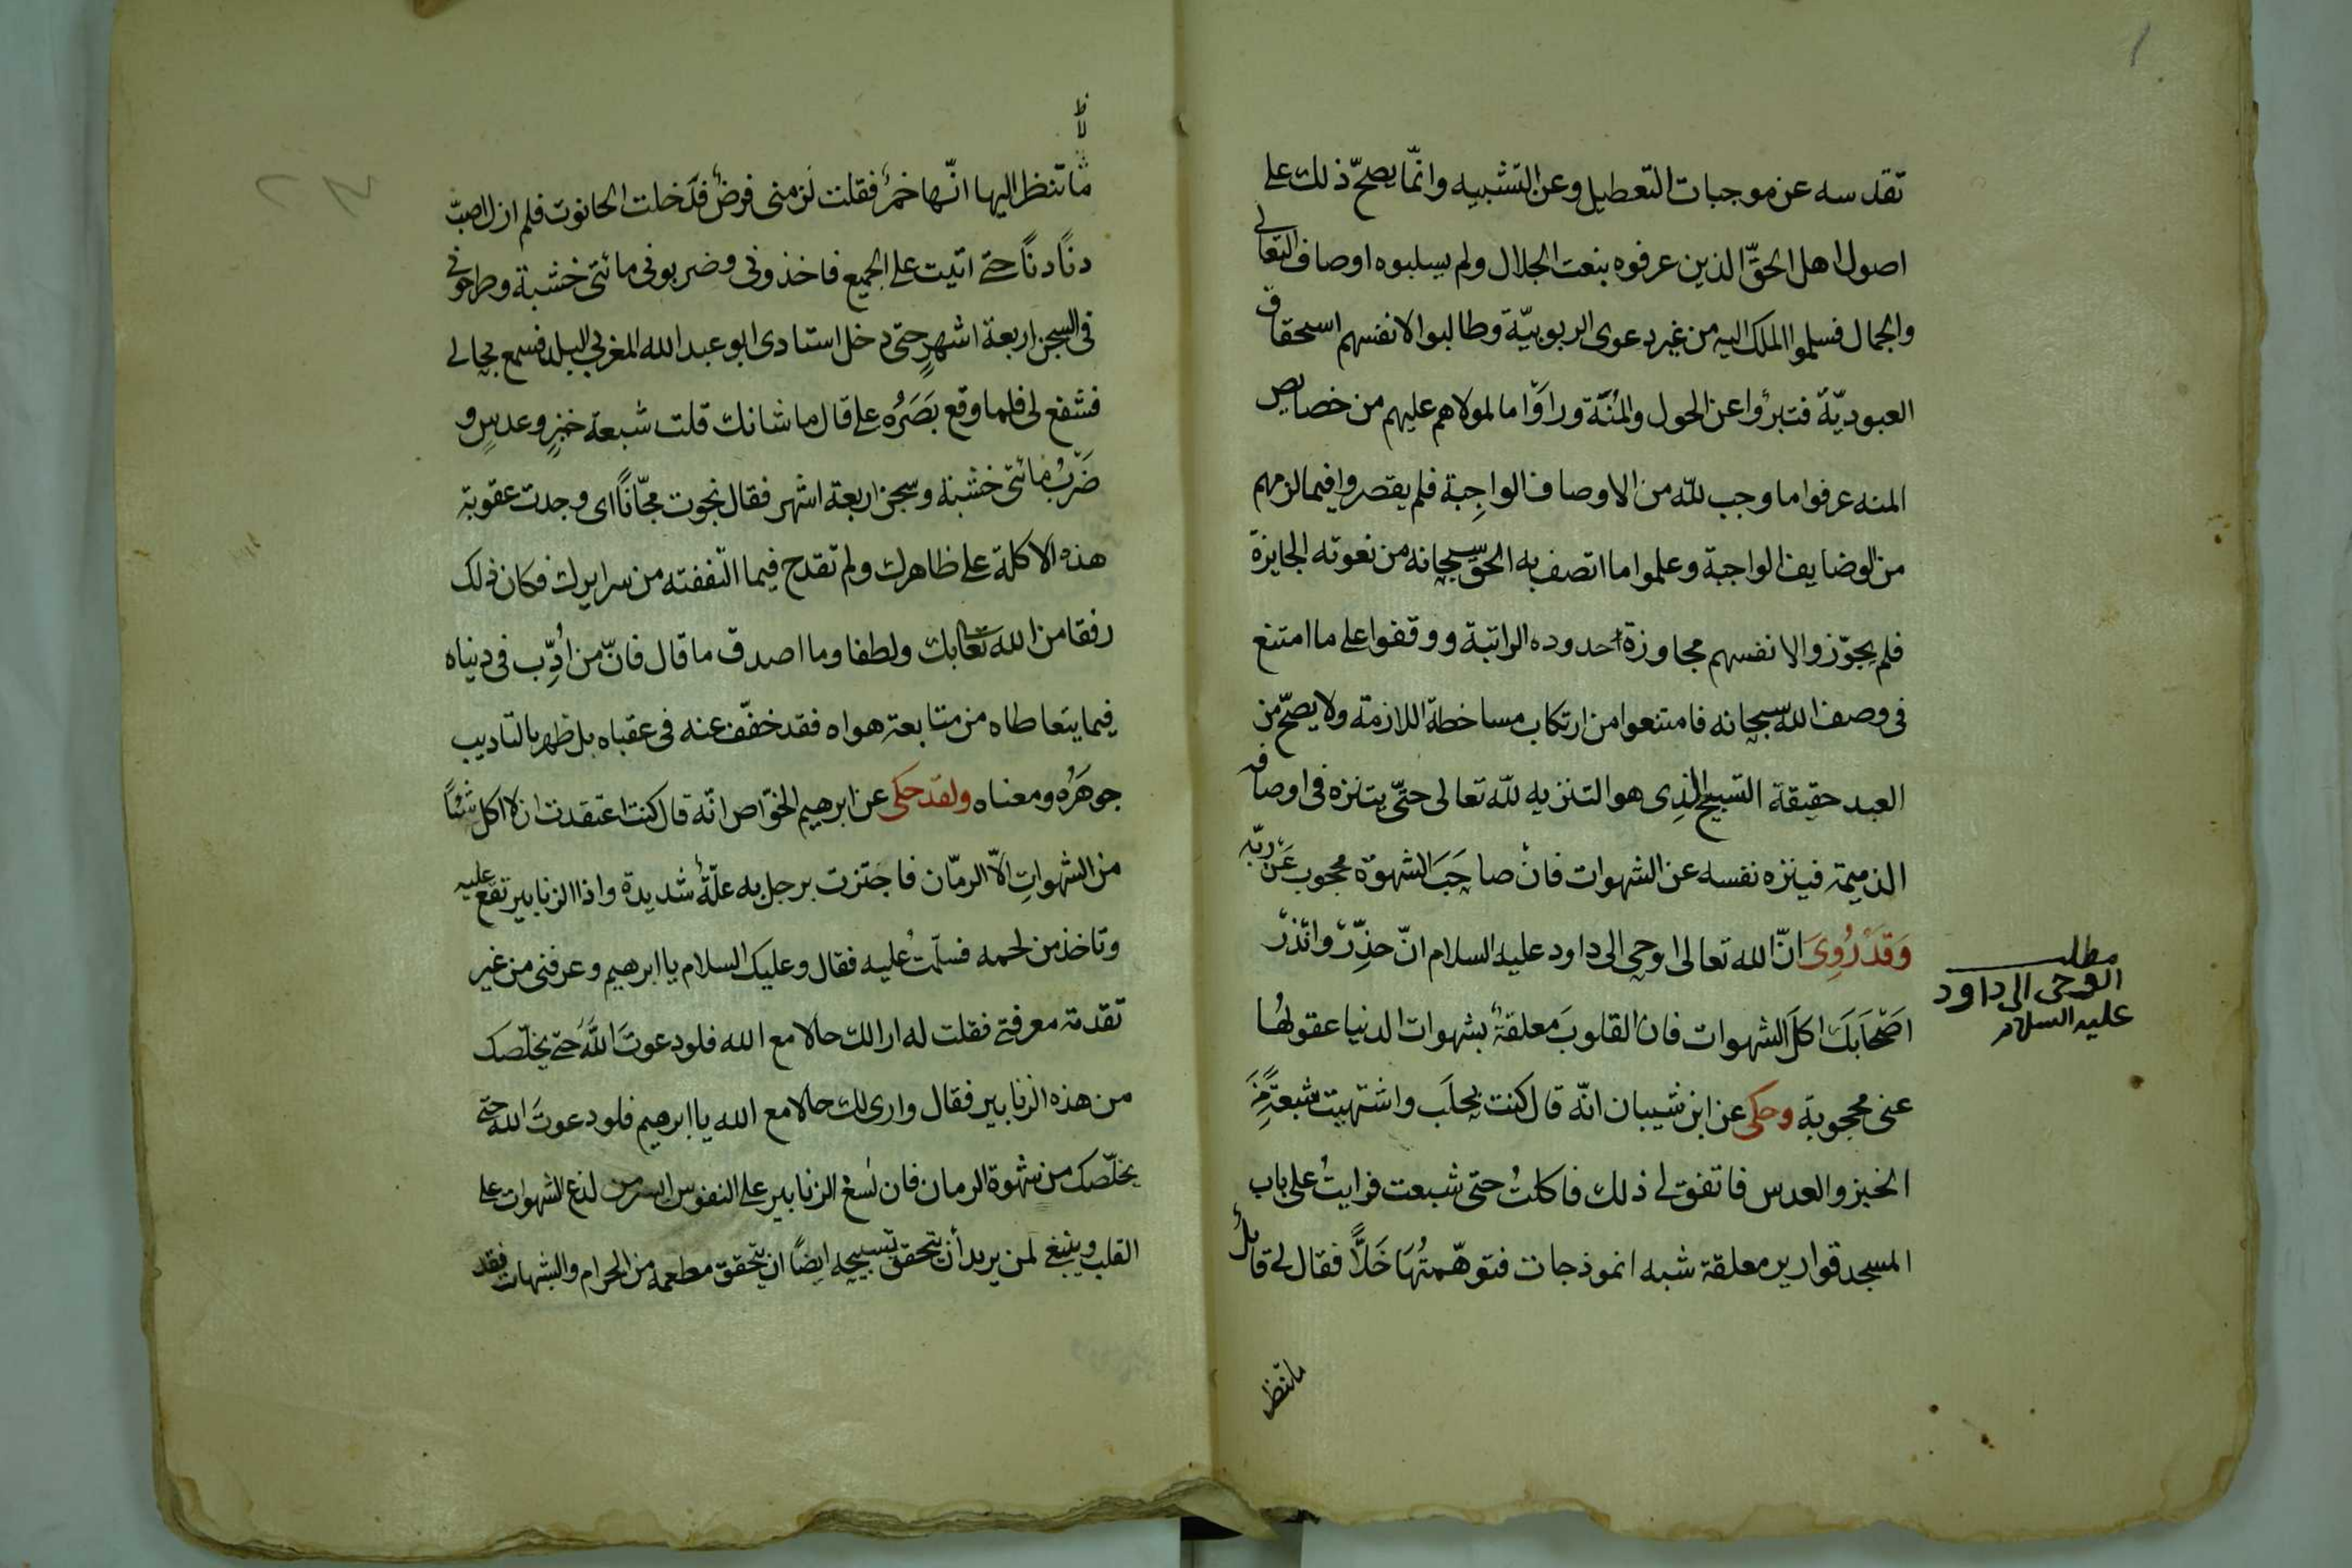 تقدسه عن موجبات التعطيل وعن التشبيه وانّما يصحّ ذلك على
اصول اهل الحقّ الذين عرفوه بنعت الجلال ولم يسلبوه اوصاف التعالى
والجمال فسلموا الملك اليه من غير دعوى الربوبيّة وطالبوا لانفسهم اسحقاق
العبوديّة فتبرؤا عن الحول والمُنّة وراَوْا ما لمولاهم عليهم من خصايص
المنه عرفوا ما وجب للّه من الاوصاف الواجِبة فلم يقصروا فيما لزمهم
من الوضايف الواجبة وعلموا ما اتصف به الحق سبحانه من نعوته الجايزة
فلم يجوّزوا لانفسهم مجاوزة حدوده الراتبة ووقفوا على ما امتنع
فى وصف اللّه سبحانه فامتنعوا من ارتكاب مساخطة اللازمة ولا يصحّ من
العبد حقيقة التسبيح الذِى هو التنزيه للّه تعالى حتّى يتنزه فى اوصافه
الذميمة فينزه نفسه عن الشهوات فانْ صاحَبَ الشهوة محجوب عَنْ ربّه
وَقَدْ رُوِىَ انّ الله تعالى اوحى الى داود عليه السلام انّ حذِّرْ وانذرْ
اصْحَابَكَ اكلَ الشهوات فان القلوبَ معلقةٌ بشهوات الدنيا عقولُها
عنى محجوبة وحكى عن ابن شيبان انّه قال كنت بحلَب واشتهيت شبعةً مِنَ
الخبز والعدس فاتفق لى ذلك فاكلتُ حتى شبعت فرايتُ على باب
المسجد قوارير معلقة شبه انموذجات فتوهّمتُهَا خَلًّا فقال لى قائلٌ
مطلب
الوحى الى داود
عليه السلام
ما تنظر
ما تنظر اليها انّها خمرٌ فقلت لَزمنى فرضٌ فدَخلت الحانوت فلم ازل اصبّ
دنًا دنًا حتى اتيت على الجميع فاخذونى وضربونى مائتى خشبة وطرحونى
فى السجن اربعة اشهرٍ حتى دخل استادى ابو عبد الله المغربى البلد فسمع بحالى
فشفع لى فلما وقع بَصَرُه على قال ما شانك قلت شبعة خبزٍ وعدسٍ و
ضَرْبُ مائتى خشبة وسجن اربعة اشهر فقال نجوت مجّانًا اى وجدت عقوبة
هذه الاكلة على ظاهرك ولم تقدح فيما التففته من سرايرك فكان ذلك
رفقا من الله تعالى بك ولطفا وما اصدق ما قال فانّ من اُدِّب فى دنياه
فيما يتعاطاه من متابعة هواه فقد خفّف عنه فى عقباه بل ظهر بالتاديب
جوهَرُه ومعناه ولقد حكى عن ابرهيم الخوّاص انّه قال كنت اعتقدت ان لا اكل شَيْئاً
من الشهواتِ الّا الرمّان فاجتزت برجل به علّةٌ شديدة واذا الزنابير تقع عليه
وتاخذ من لحمه فسلّمتُ عليه فقال وعليك السلام يا ابرهيم وعرفنى من غير
تقدمة معرفتى فقلت له ارا لك حالا مع الله فلو دعوتَ اللّهَ حتى يخلّصك
من هذه الزنابير فقال وارى لك حالا مع الله يا ابرهيم فلو دعوتَ الله حتى
يخلّصك من شهوة الرمان فان لسْع الزنابير على النفوس من لدغ الشهوات على
القلب وينبغى لمن يريد أن يتحقق تسبيحه ايضًا ان يتحقق مطعمه من الحرام والشبهات فقد